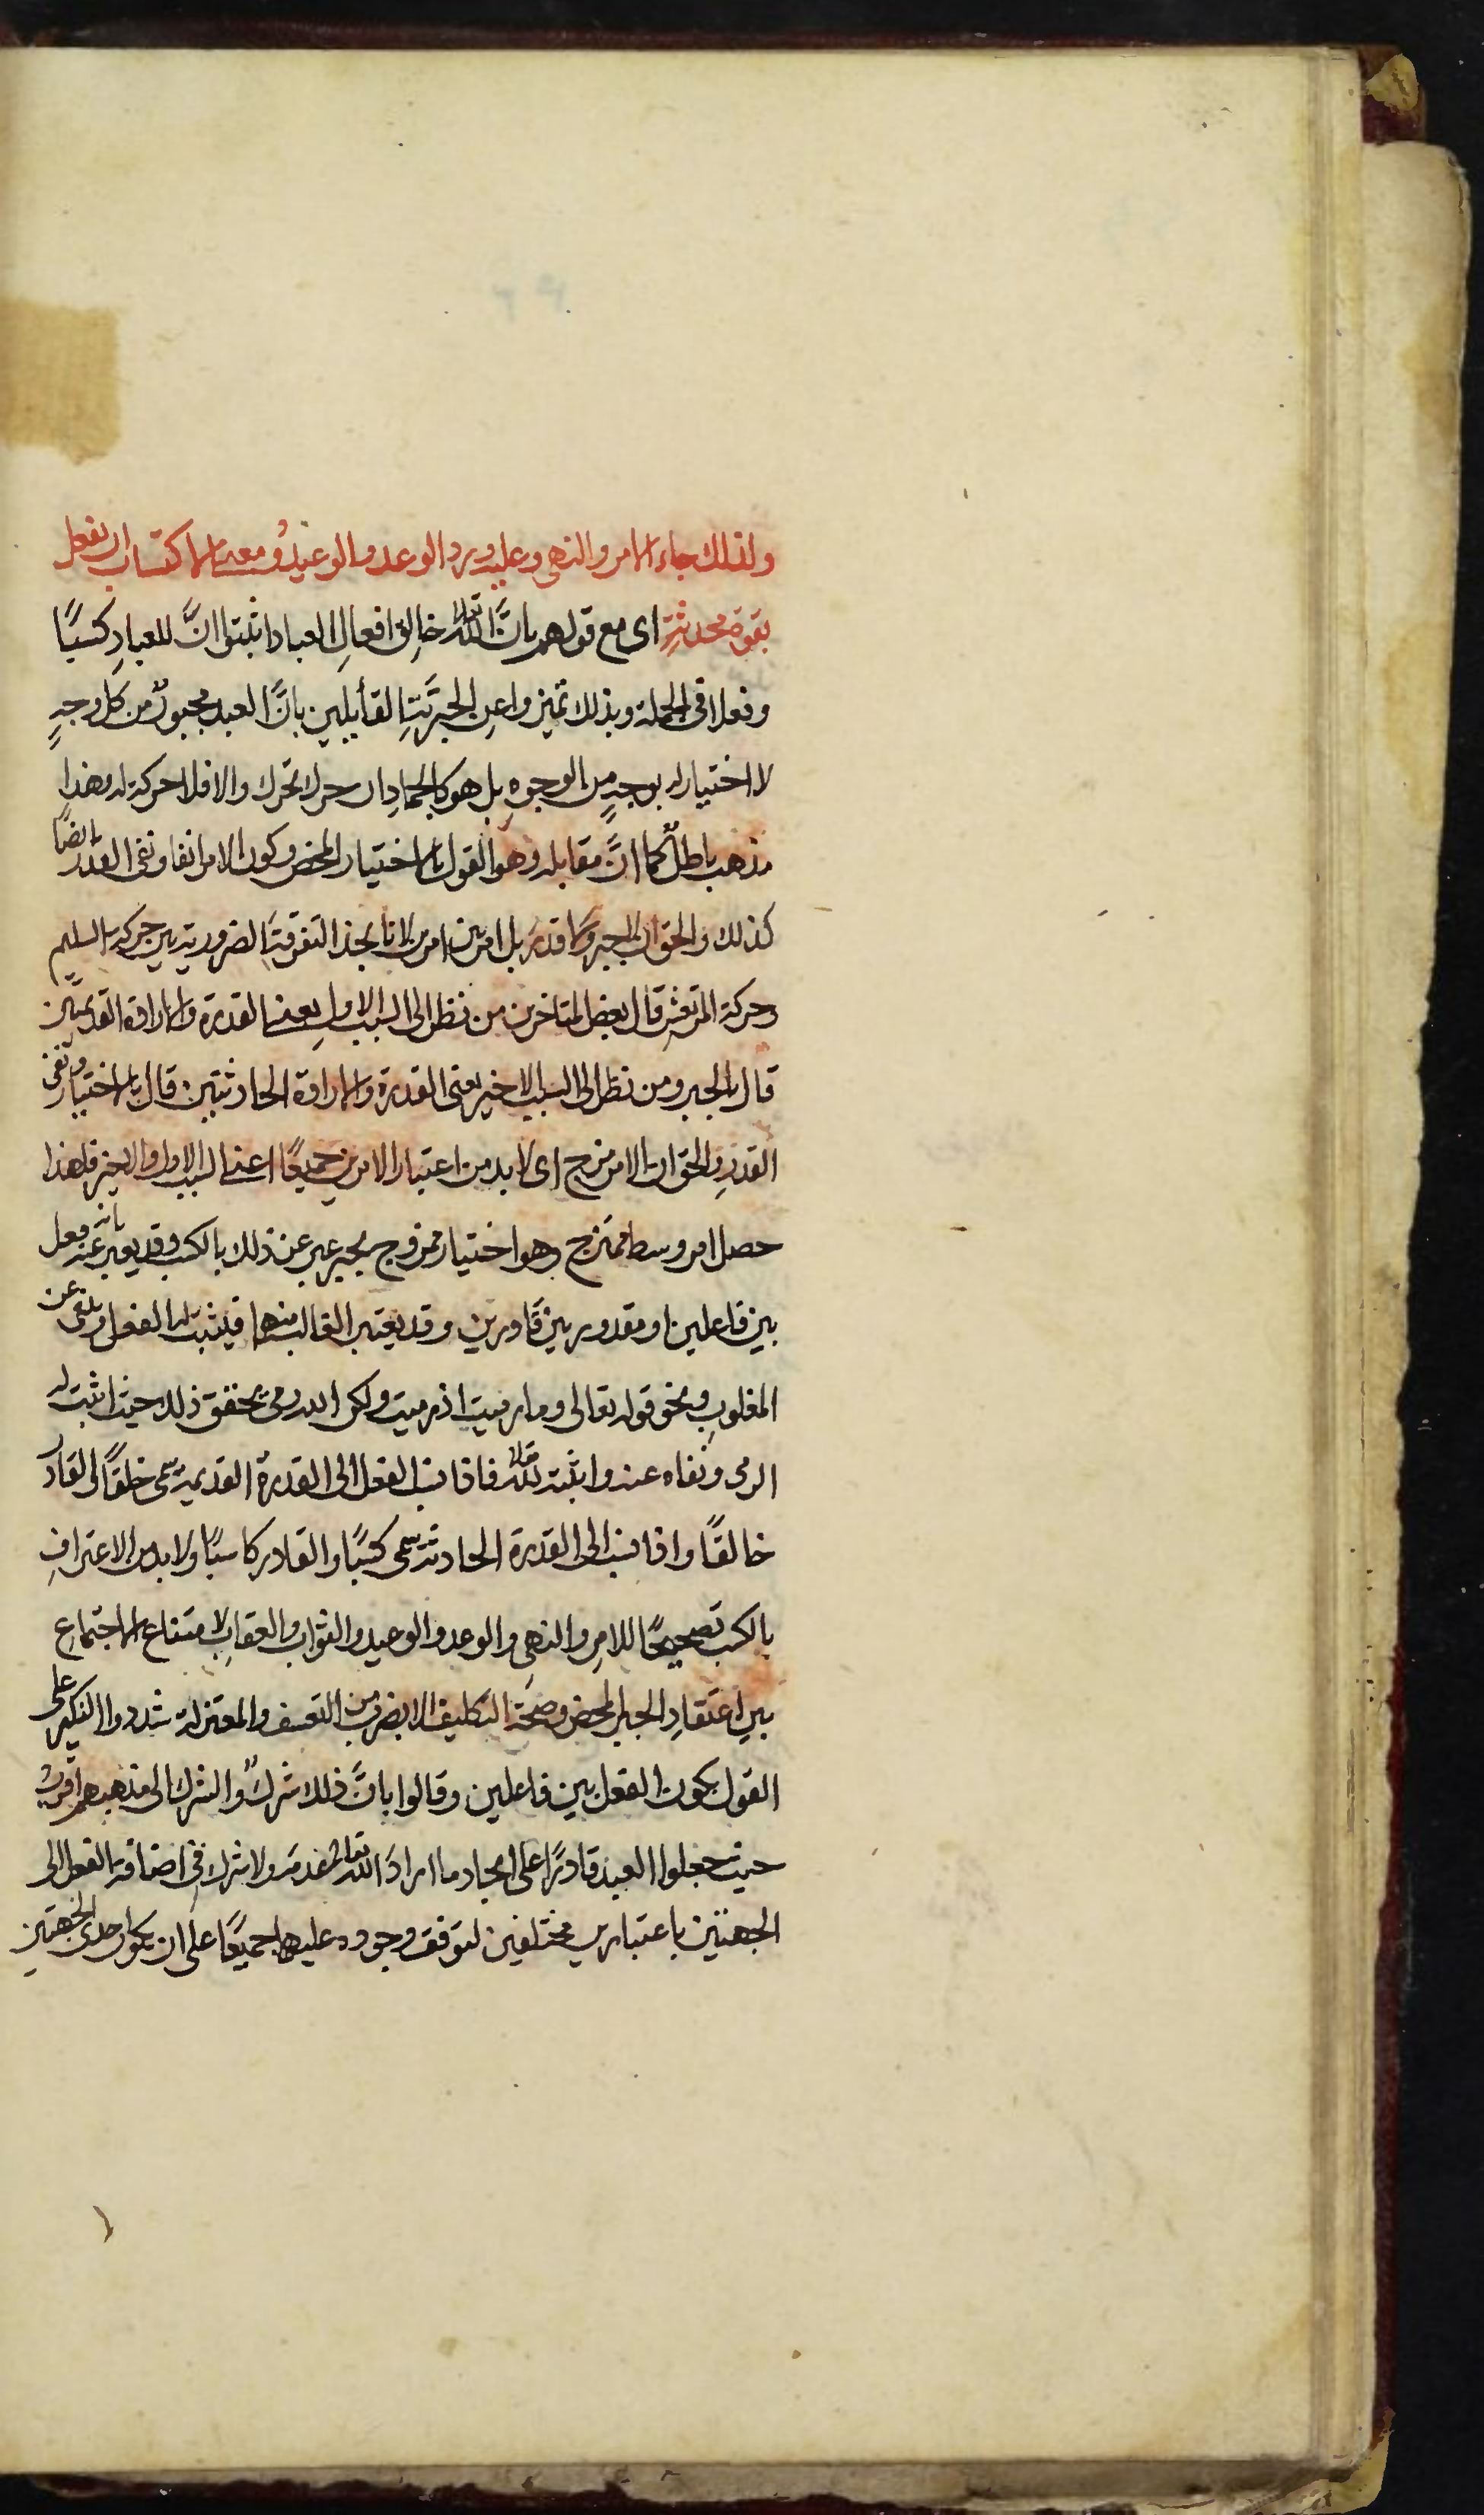 ولذلك جاء الامر والنهى وعليه ورد الوعد والوعيد ومعنى الاكتساب ان يفعل
بقوة محدثة اى مع قولهم بانَّ الله تعالى خالق افعالِ العباد اثبتوا انَّ للعبادِ كسبًا
وفعلا فى الجملة وبذلك تميزوا عن الجبريَّة القائلين بانَّ العبد مجبورٌ من كل وجهٍ
لا اختيار له بوجهٍ من الوجوهِ بل هو كالجمادِ ان حرك تحرك والا فلا حركة له وهذا
مذهب باطلٌ كما انَّ مقابله وهو القول بالاختيار المحض وكون الامر انفا ونفى القدر ايضًا
كذلك والحق ان لا جبر ولا قدر بل امر بين امرين لانا نجد التفرقة الضرورية بين حركة السليم
وحركة المرتعش قال بعض المتاخرين من نظر الى السبب الاول يعنى القدرة والارادة القديمتين
قال بالجبر ومن نظر الى السبب الاخير يعنى القدرة والارادة الحادثتين قال بالاختيار ونفى
القدر والحق ان الامر مزج اى لا بد من اعتبار الامرين جميعًا اعنى السبب الاول والاخير فلهذا
حصل امر وسط ممتزج وهو اختيار ممزوج بجبر عبر عن ذلك بالكسب وقد يعبر عنه بانه فعل
بين فاعلين او مقدور بين قادرين وقد يعتبر الغالب منهما فيثبت له الفعل وينفى عن
المغلوبِ ونحو قوله تعالى وما رميت اذ رميت ولكن الله رمى يحقق ذلك حيث اثبت له
الرمى ونفاه عنه واثبته لله تعالى فاذا نسب الفعل الى القدرة القديمة سمى خلقًا والقادر
خالقًا واذا نسب الى القدرة الحادثة سمى كسبًا والقادر كاسبًا ولا بد من الاعترافِ
بالكسب تصحيحًا للامرِ والنهىِ والوعد والوعيد والثواب والعقابِ لامتناع الاجتماع
بين اعتقادِ الجبر المحض وصحة التكليف الا بضرب من التعسف والمعتزلة شددوا النكير على
القول بكون الفعل بين فاعلين وقالوا بانَّ ذلك شركٌ والشرك الى مذهبهم اقرب
حيث جعلوا العبد قادرًا على ايجاد ما اراد الله تعالى عدمه ولا شرك فى اضافة الفعل الى
الجهتين باعتبارين مختلفين لتوقف وجوده عليهما جميعًا على ان يكون احدى الجهتينِ